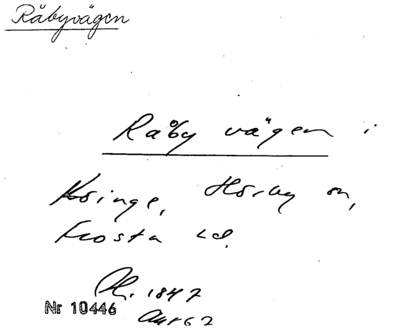 Råbyvägen
Råby vägen i
Kvinge, Hörby sn,
Frosta hd.
Pl. 1847
Nr 10446